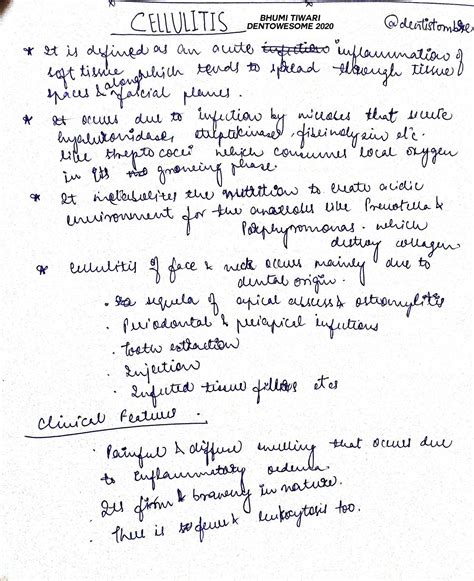 CELLULITIS
BHUMI TIWARI
DENTOWESOME 2020
@dentistombre
* It is defined as an acute infection inflammation of
soft tissue which tends to spread through tissue
spaces & along facial planes.
* It occurs due to infection by microbes that secrete
hyaluronidase, streptokinase, fibrinolysin etc.
like streptococci which consumes local oxygen
in its growing phase.
* It metabolizes the nutrition to create acidic
environment for the anaerobes like Prevotella &
Porphyromonas. which
destroy collagen
* Cellulitis of face & neck occurs mainly due to
dental origin.
. sequela of apical abscess & osteomylitis
. Periodontal & periapical infections
. Tooth extraction
. Injection
. Infected tissue fillers etc
Clinical Features.
. Painful & diffuse swelling that occurs due
to inflammatory oedema.
. Its firm & brawny in nature.
. There is fever & leukocytosis too.